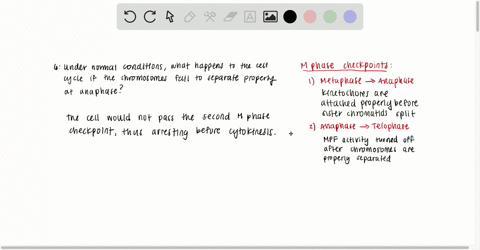 6: Under normal conditions, what happens to the cell
cycle if the chromosomes fail to separate properly
at anaphase?
The cell would not pass the second M phase
checkpoint, thus arresting before cytokinesis.
M phase checkpoints:
1) Metaphase → Anaphase
kinetochores are
attached properly before
sister chromatids split
2) Anaphase → Telophase
MPF activity turned off
after chromosomes are
properly separated